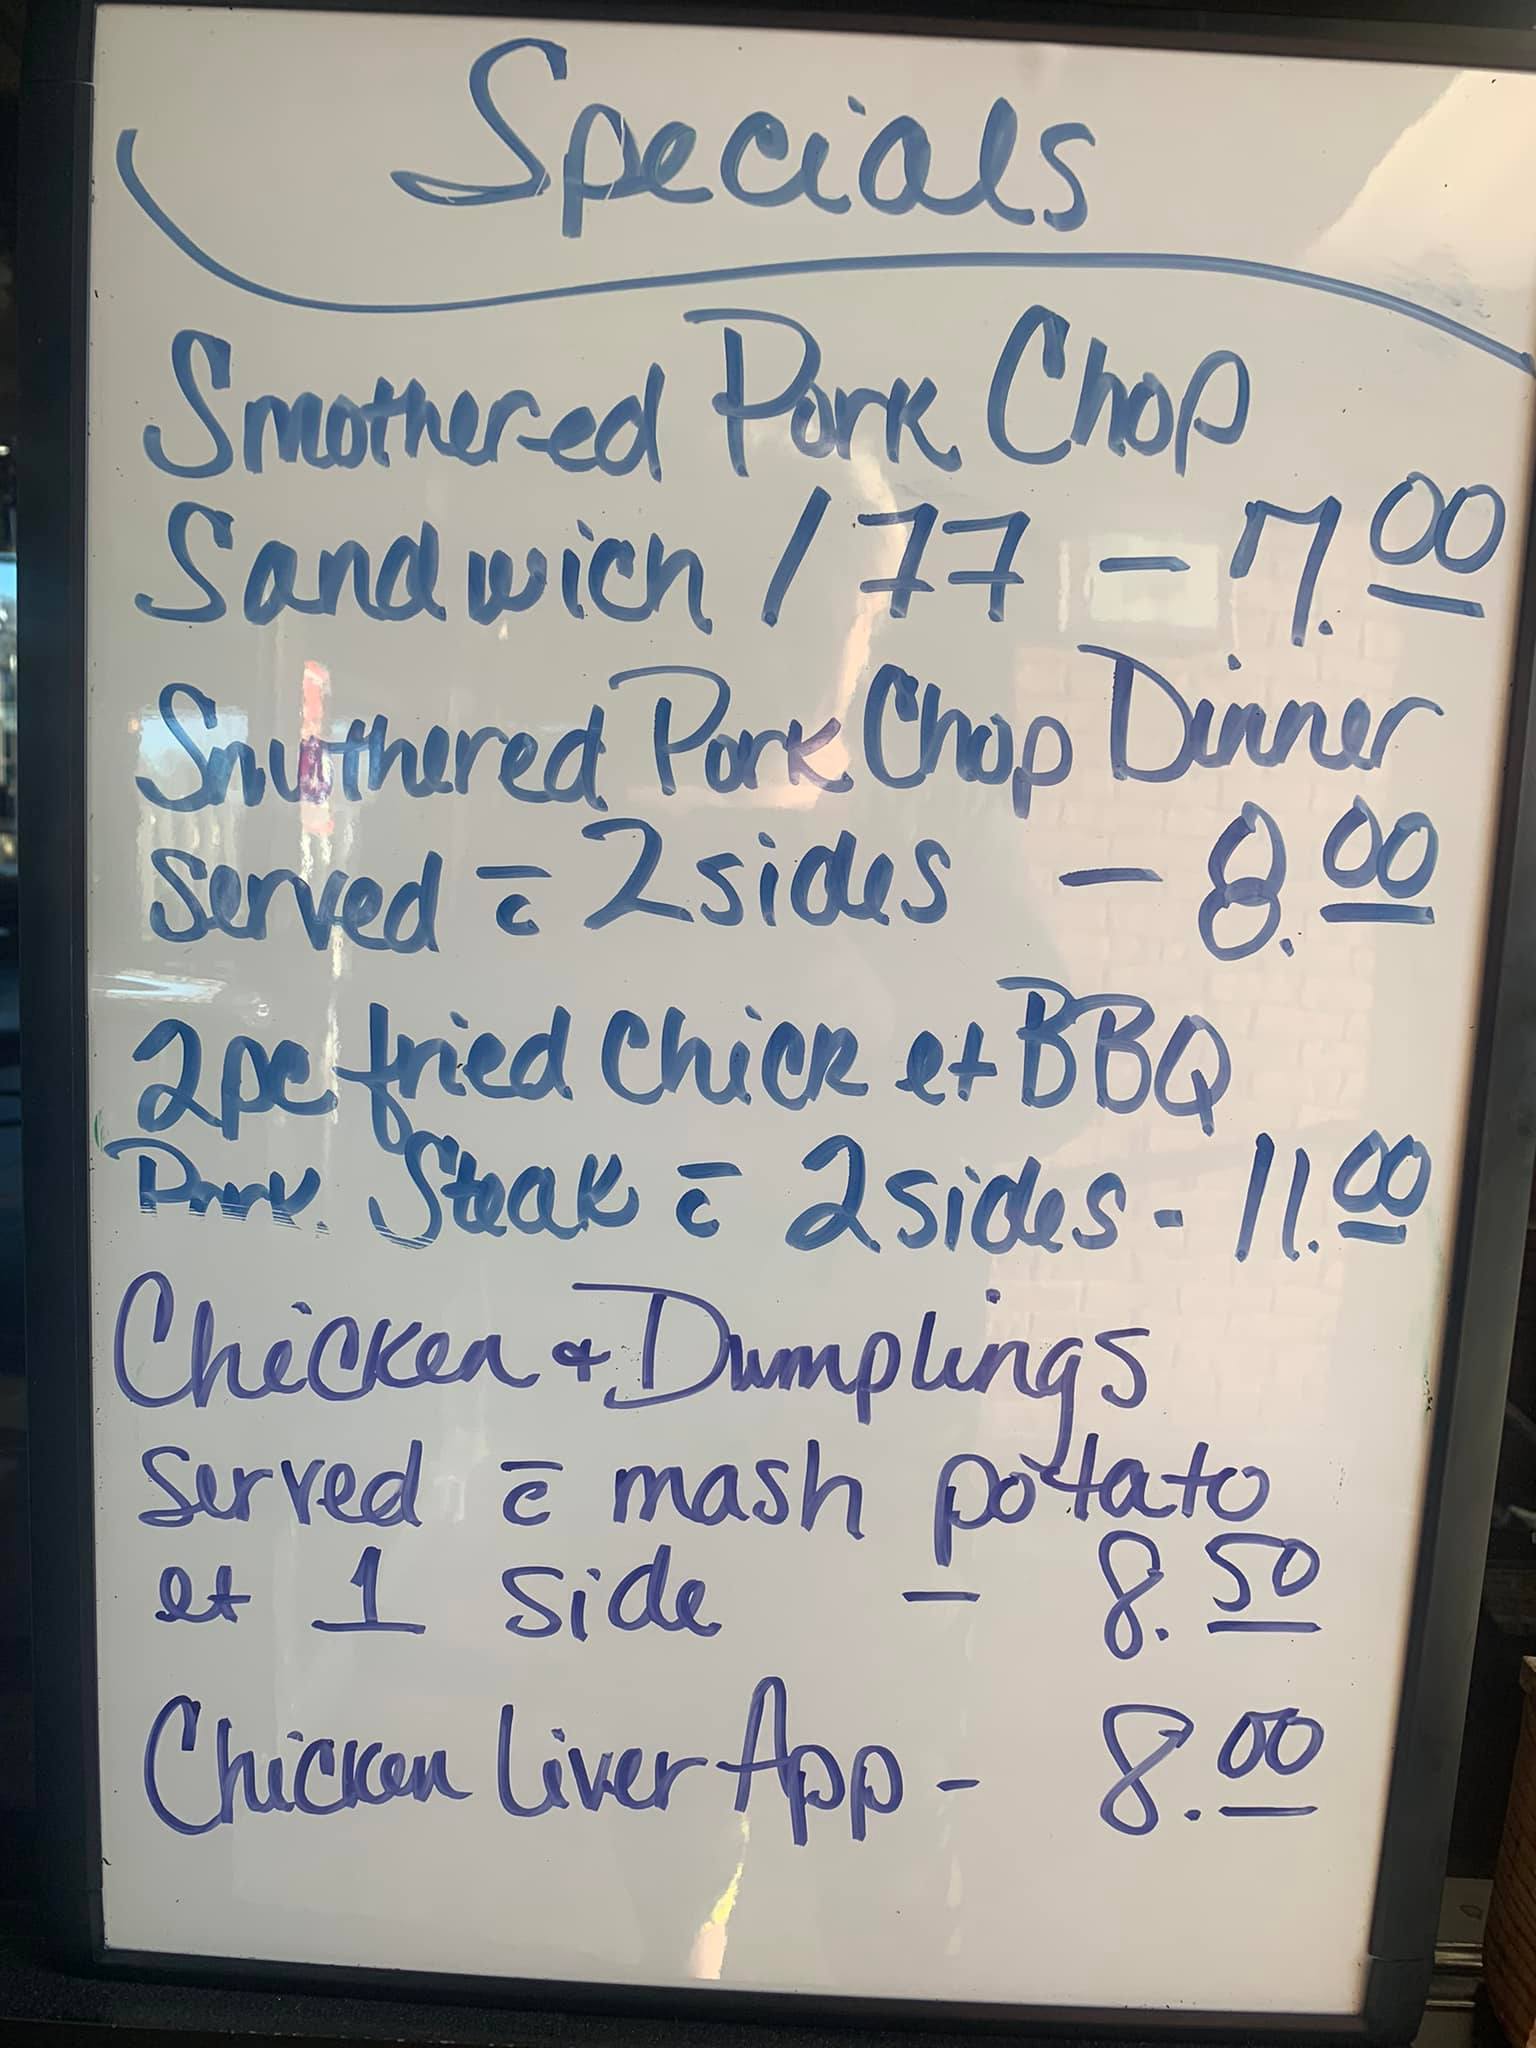 Specials
Smothered Pork Chop
Sandwich / FF - 7.00
Smothered Pork Chop Dinner
Served c̄ 2 sides - 8.00
2pc fried Chick et BBQ
Pork Steak c̄ 2 sides - 11.00
Chicken & Dumplings
Served c̄ mash potato
et 1 side - 8.50
Chicken Liver App - 8.00